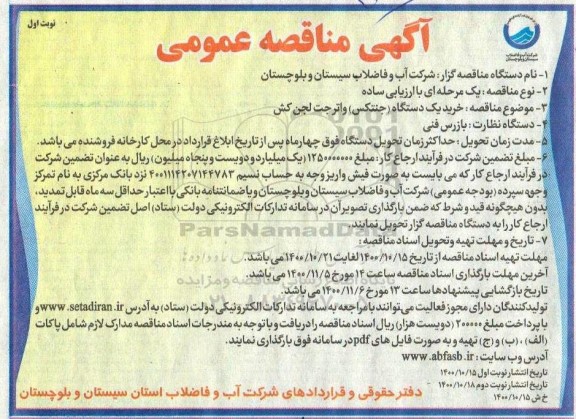 نوبت اول
شرکت آب و فاضلاب
سیستان و بلوچستان
آگهی مناقصه عمومی
۱- نام دستگاه مناقصه گزار : شرکت آب و فاضلاب سیستان و بلوچستان
۲- نوع مناقصه : یک مرحله ای با ارزیابی ساده
۳- موضوع مناقصه : خرید یک دستگاه (جنتکس) واترجت لجن کش
۴- دستگاه نظارت : بازرس فنی
۵- مدت زمان تحویل : حداکثر زمان تحویل دستگاه فوق چهارماه پس از تاریخ ابلاغ قرارداد در محل کارخانه فروشنده می باشد.
۶- مبلغ تضمین شرکت در فرآیند ارجاع کار : مبلغ ۱۲۵۰۰۰۰۰۰۰ (یک میلیارد و دویست و پنجاه میلیون) ریال به عنوان تضمین شرکت
در فرآیند ارجاع کار که می بایست به صورت فیش واریز وجه به حساب نسیم ۴۰۰۱۱۱۴۲۰۷۱۴۴۷۸۳ نزد بانک مرکزی به نام تمرکز
وجوه سپرده (بودجه عمومی) شرکت آب و فاضلاب سیستان و بلوچستان و یا ضمانتنامه بانکی با اعتبار حداقل سه ماه قابل تمدید،
بدون هیچگونه قید و شرط که ضمن بارگذاری تصویر آن در سامانه تدارکات الکترونیکی دولت (ستاد) اصل تضمین شرکت در فرآیند
ارجاع کار را به دستگاه مناقصه گزار تحویل نمایند.
۷- تاریخ و مهلت تهیه و تحویل اسناد مناقصه :
مهلت تهیه اسناد مناقصه از تاریخ ۱۴۰۰/۱۰/۱۵ لغایت ۱۴۰۰/۱۰/۲۱ می باشد.
آخرین مهلت بارگذاری اسناد مناقصه ساعت ۱۴ مورخ ۱۴۰۰/۱۱/۵ می باشد.
تاریخ بازگشایی پیشنهادها ساعت ۱۳ مورخ ۱۴۰۰/۱۱/۶ می باشد.
تولیدکنندگان دارای مجوز فعالیت می توانند با مراجعه به سامانه تدارکات الکترونیکی دولت (ستاد) به آدرس www.setadiran.ir و
با پرداخت مبلغ ۲۰۰۰۰۰ (دویست هزار) ریال اسناد مناقصه را دریافت و با توجه به مندرجات اسناد مناقصه مدارک لازم شامل پاکات
(الف) ، (ب) و (ج) تهیه و به صورت فایل های pdf در سامانه فوق بارگذاری نمایند.
آدرس وب سایت : www.abfasb.ir
تاریخ انتشار نوبت اول ۱۴۰۰/۱۰/۱۵
تاریخ انتشار نوبت دوم ۱۴۰۰/۱۰/۱۸
خ ش ۱۴۰۰/۱۰/۱۵
دفتر حقوقی و قراردادهای شرکت آب و فاضلاب استان سیستان و بلوچستان
ParsNamadData